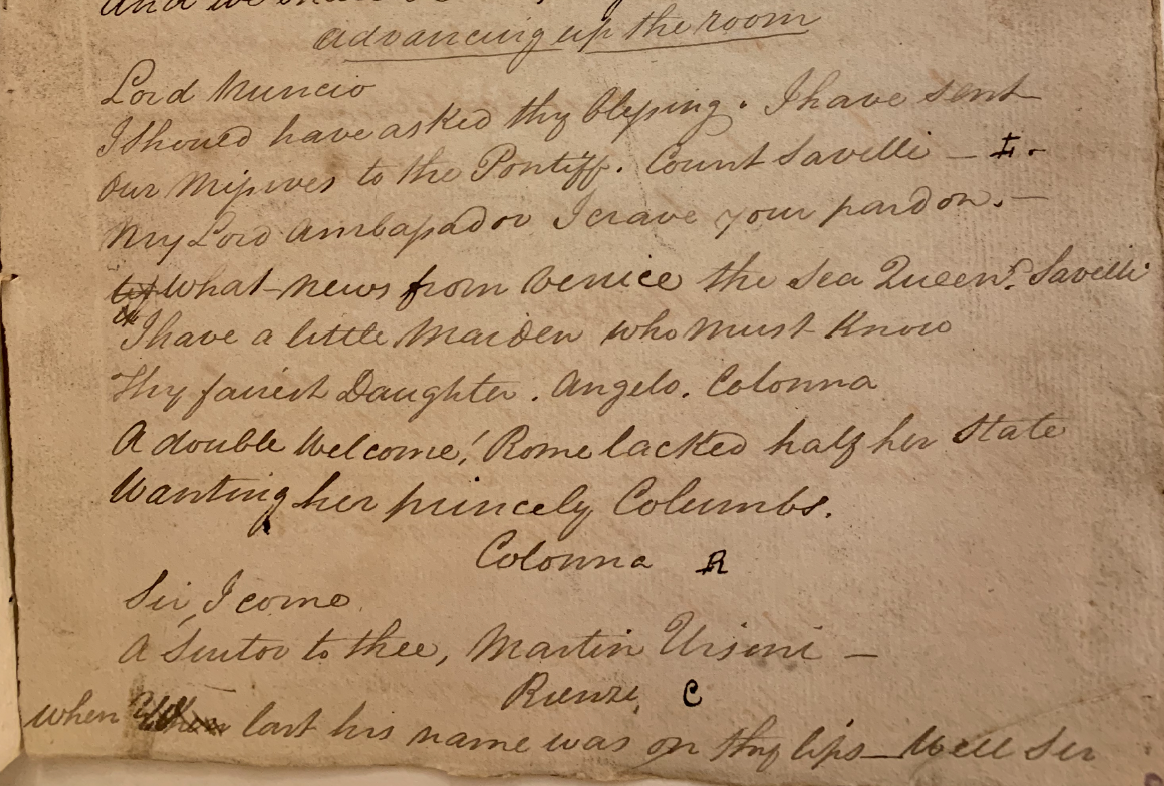 and we
advancing up the room
Lord Nuncio
I should have asked thy blessing. I have sent
Our Missives to the Pontiff. Count Savelli — L.
My Lord Ambassador I crave your pardon. —
What news from Venice the Sea Queen? Savelli
I have a little Maiden who must Know
Thy fairest Daughter. Angelo. Colonna
A double Welcome! Rome lacked half her State
Wanting her princely Columbs.
Colonna R
Sir, I come
A Suitor to thee, Martin Ursini —
Rienzi, C
When last his name was on thy lips — Well Sir